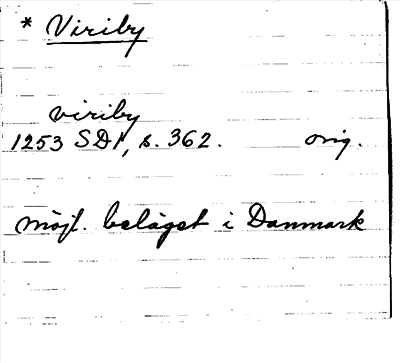 * Viriby
viriby
1253 SD1, s. 362. orig.
möjl. beläget i Danmark